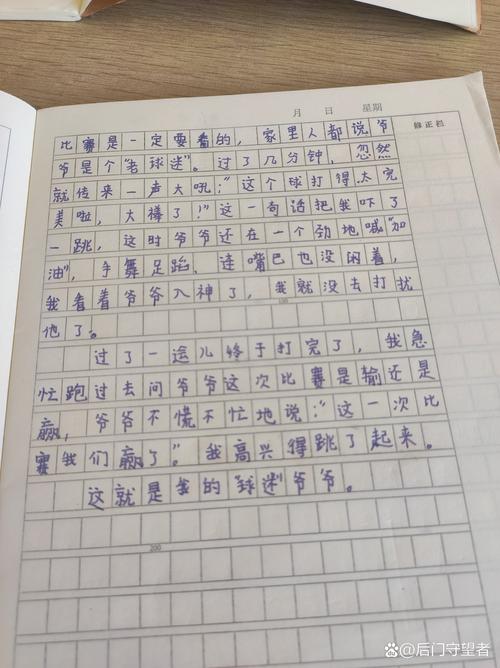 月 日 星期
修正栏
比赛是一定要看的，家里人都说爷
爷是个“老球迷”。过了几分钟，忽然
就传来一声大吼：“这个球打得太完
美啦，大棒了！”这一句话把我吓了
一跳，这时爷爷还在一个劲地喊“加
油”，手舞足蹈，连嘴巴也没闲着，
我看着爷爷入神了，我就没去打扰
他了。
100
过了一会儿终于打完了，我急
忙跑过去问爷爷这次比赛是输还是
赢，爷爷不慌不忙地说：“这一次比
赛我们赢了”。我高兴得跳了起来。
这就是我的“球迷”爷爷。
200
@后门守望者